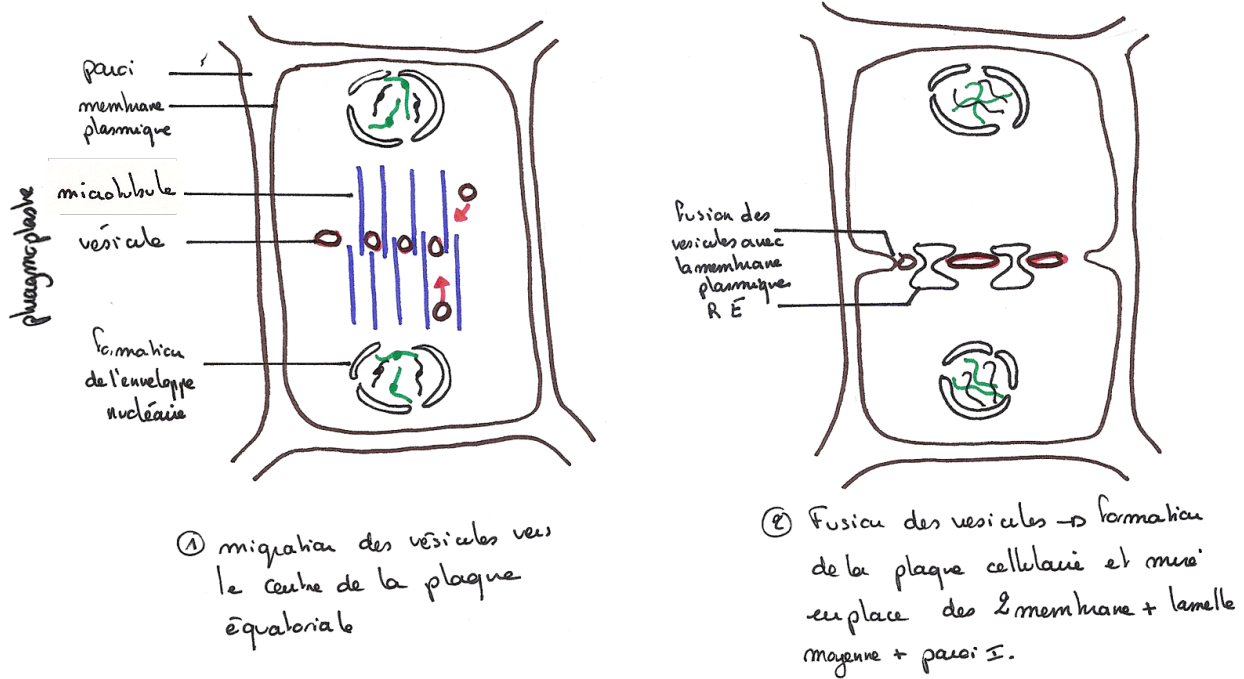 paroi
membrane
plasmique
microtubule
vésicule
phragmoplaste
formation
de l'enveloppe
nucléaire
① migration des vésicules vers
le centre de la plaque
équatoriale
Fusion des
vesicules avec
la membrane
plasmiques
R E
② Fusion des vesicules → formation
de la plaque cellulaire et mise
en place des 2 membrane + lamelle
moyenne + paroi I.